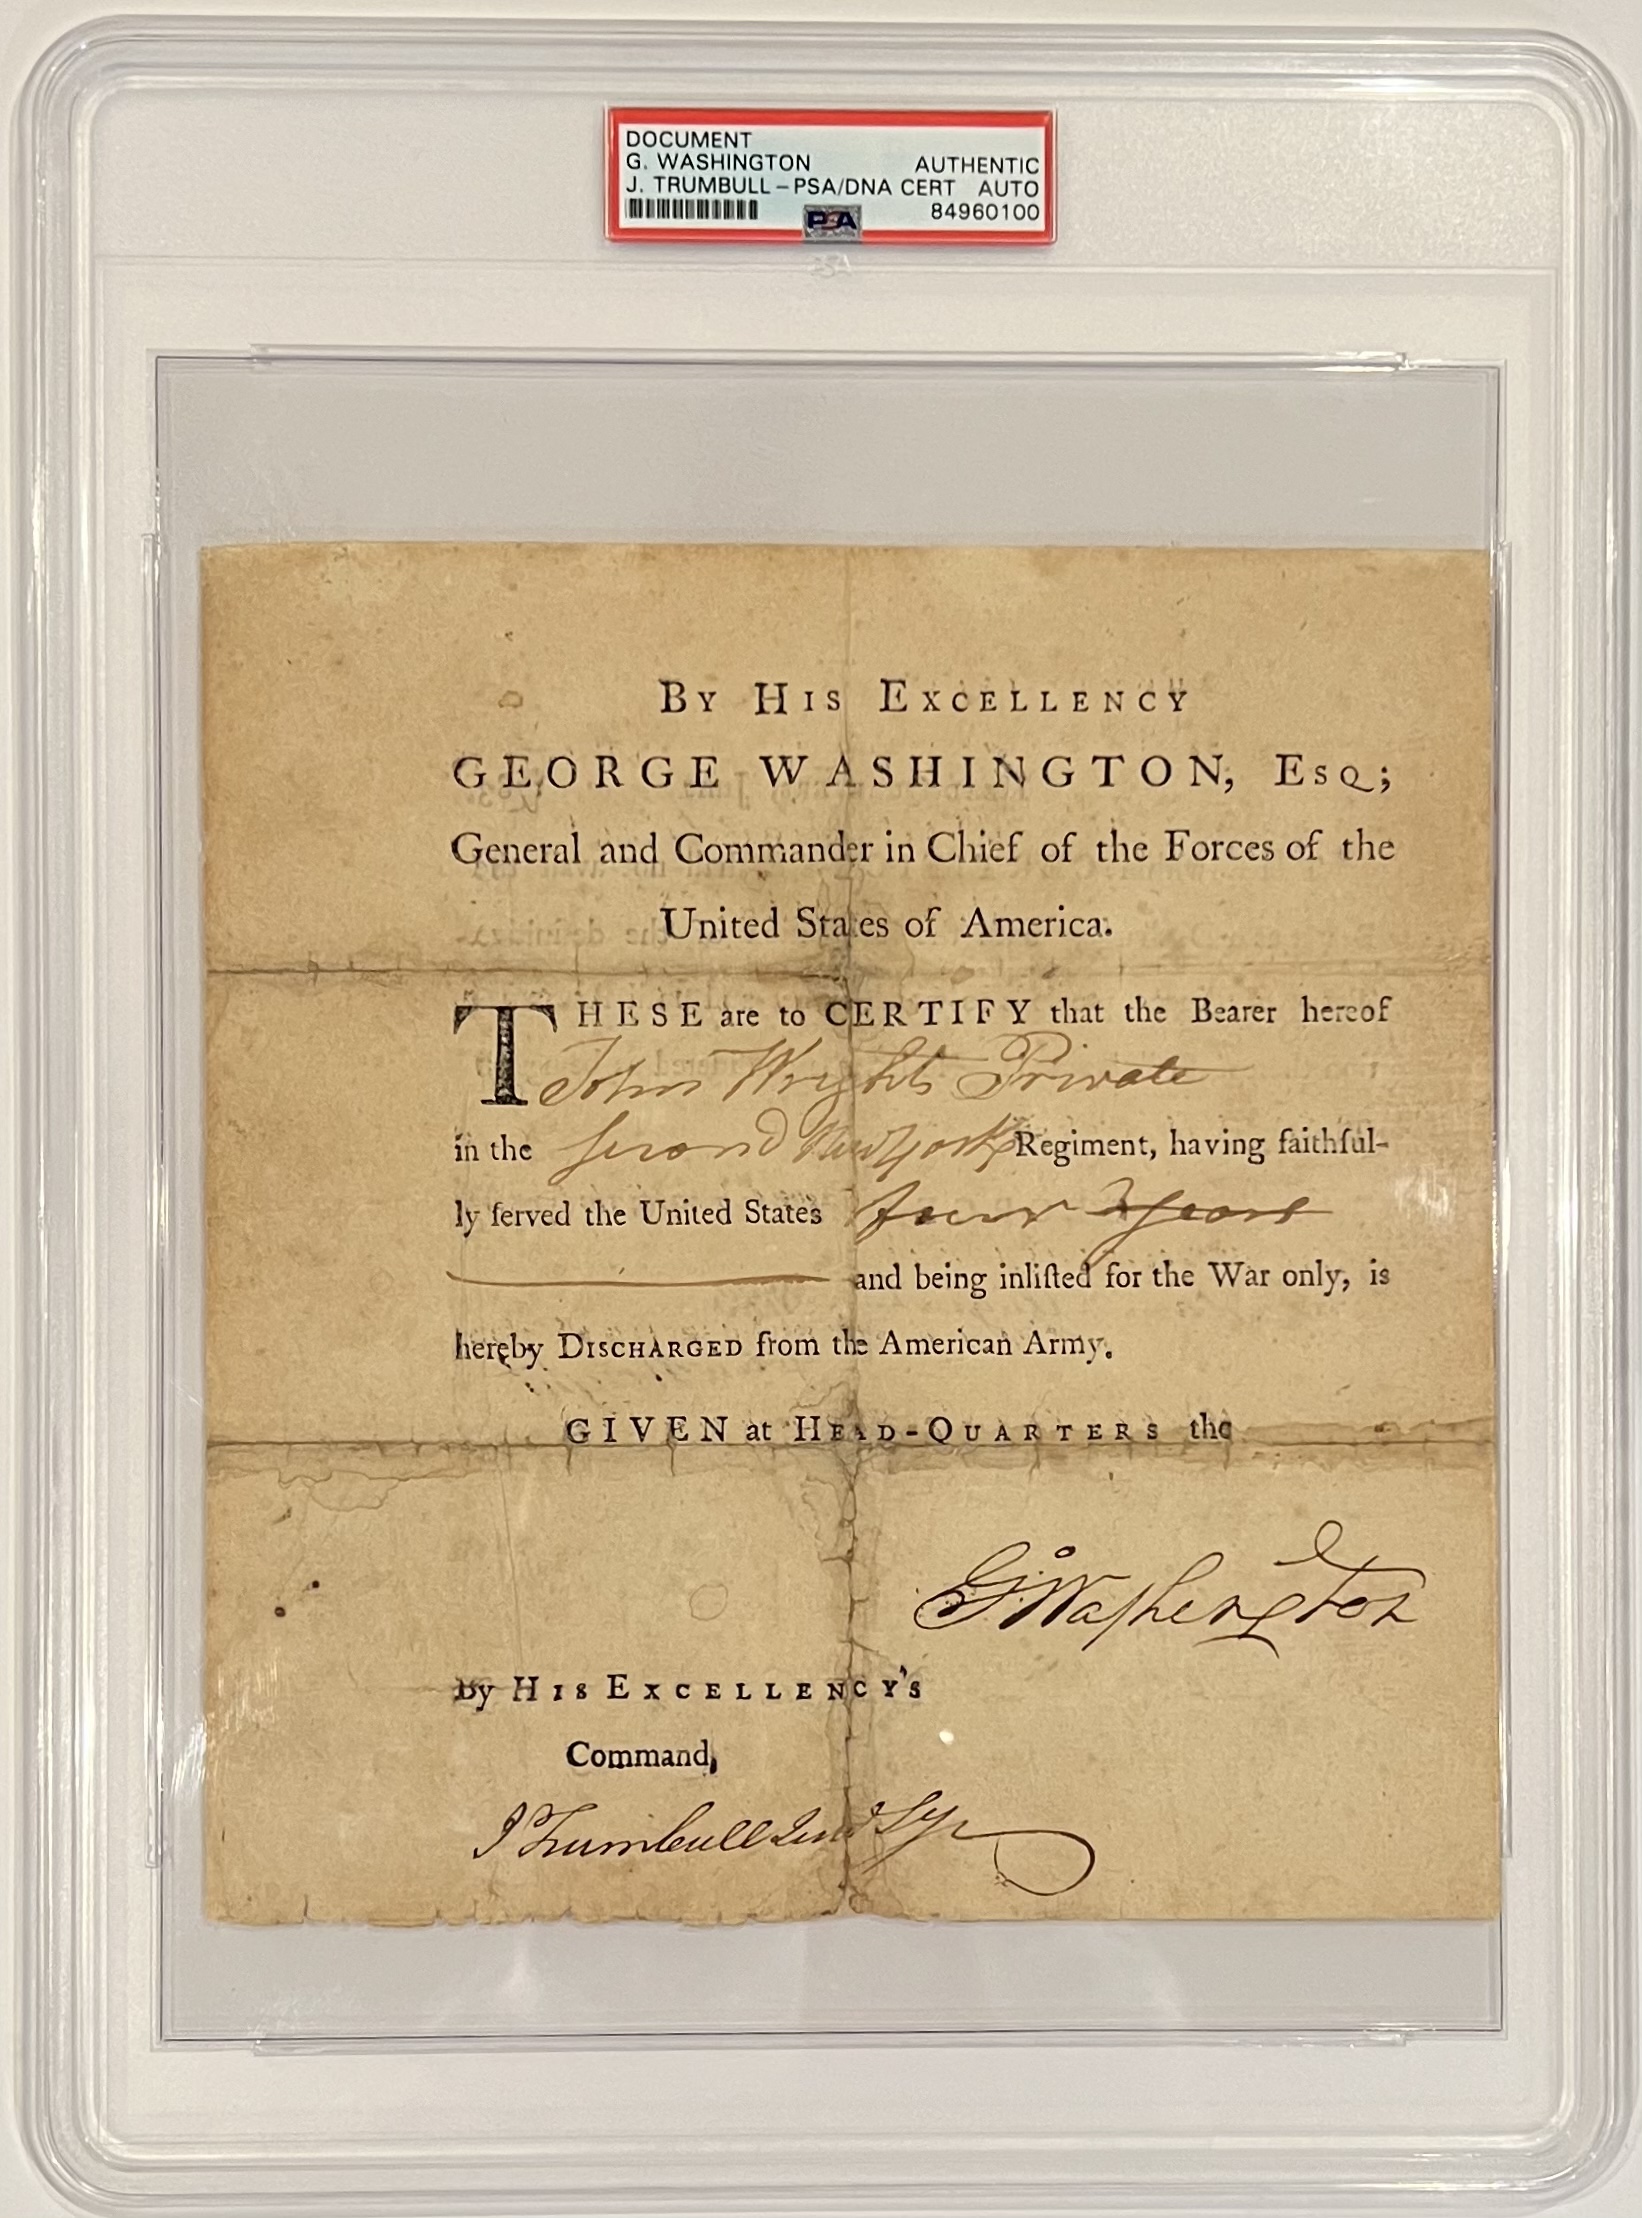 DOCUMENT
G. WASHINGTON AUTHENTIC
J. TRUMBULL – PSA/DNA CERT AUTO
PSA 84960100
By His Excellency
GEORGE WASHINGTON, Esq;
General and Commander in Chief of the Forces of the
United States of America.
THESE are to CERTIFY that the Bearer hereof
John Wright Private
in the second New York Regiment, having faithful-
ly ſerved the United States four Years
and being inliſted for the War only, is
hereby Discharged from the American Army.
GIVEN at Head-Quarters the
Go Washington
By His Excellency's
Command,
J Trumbull Jun Sy